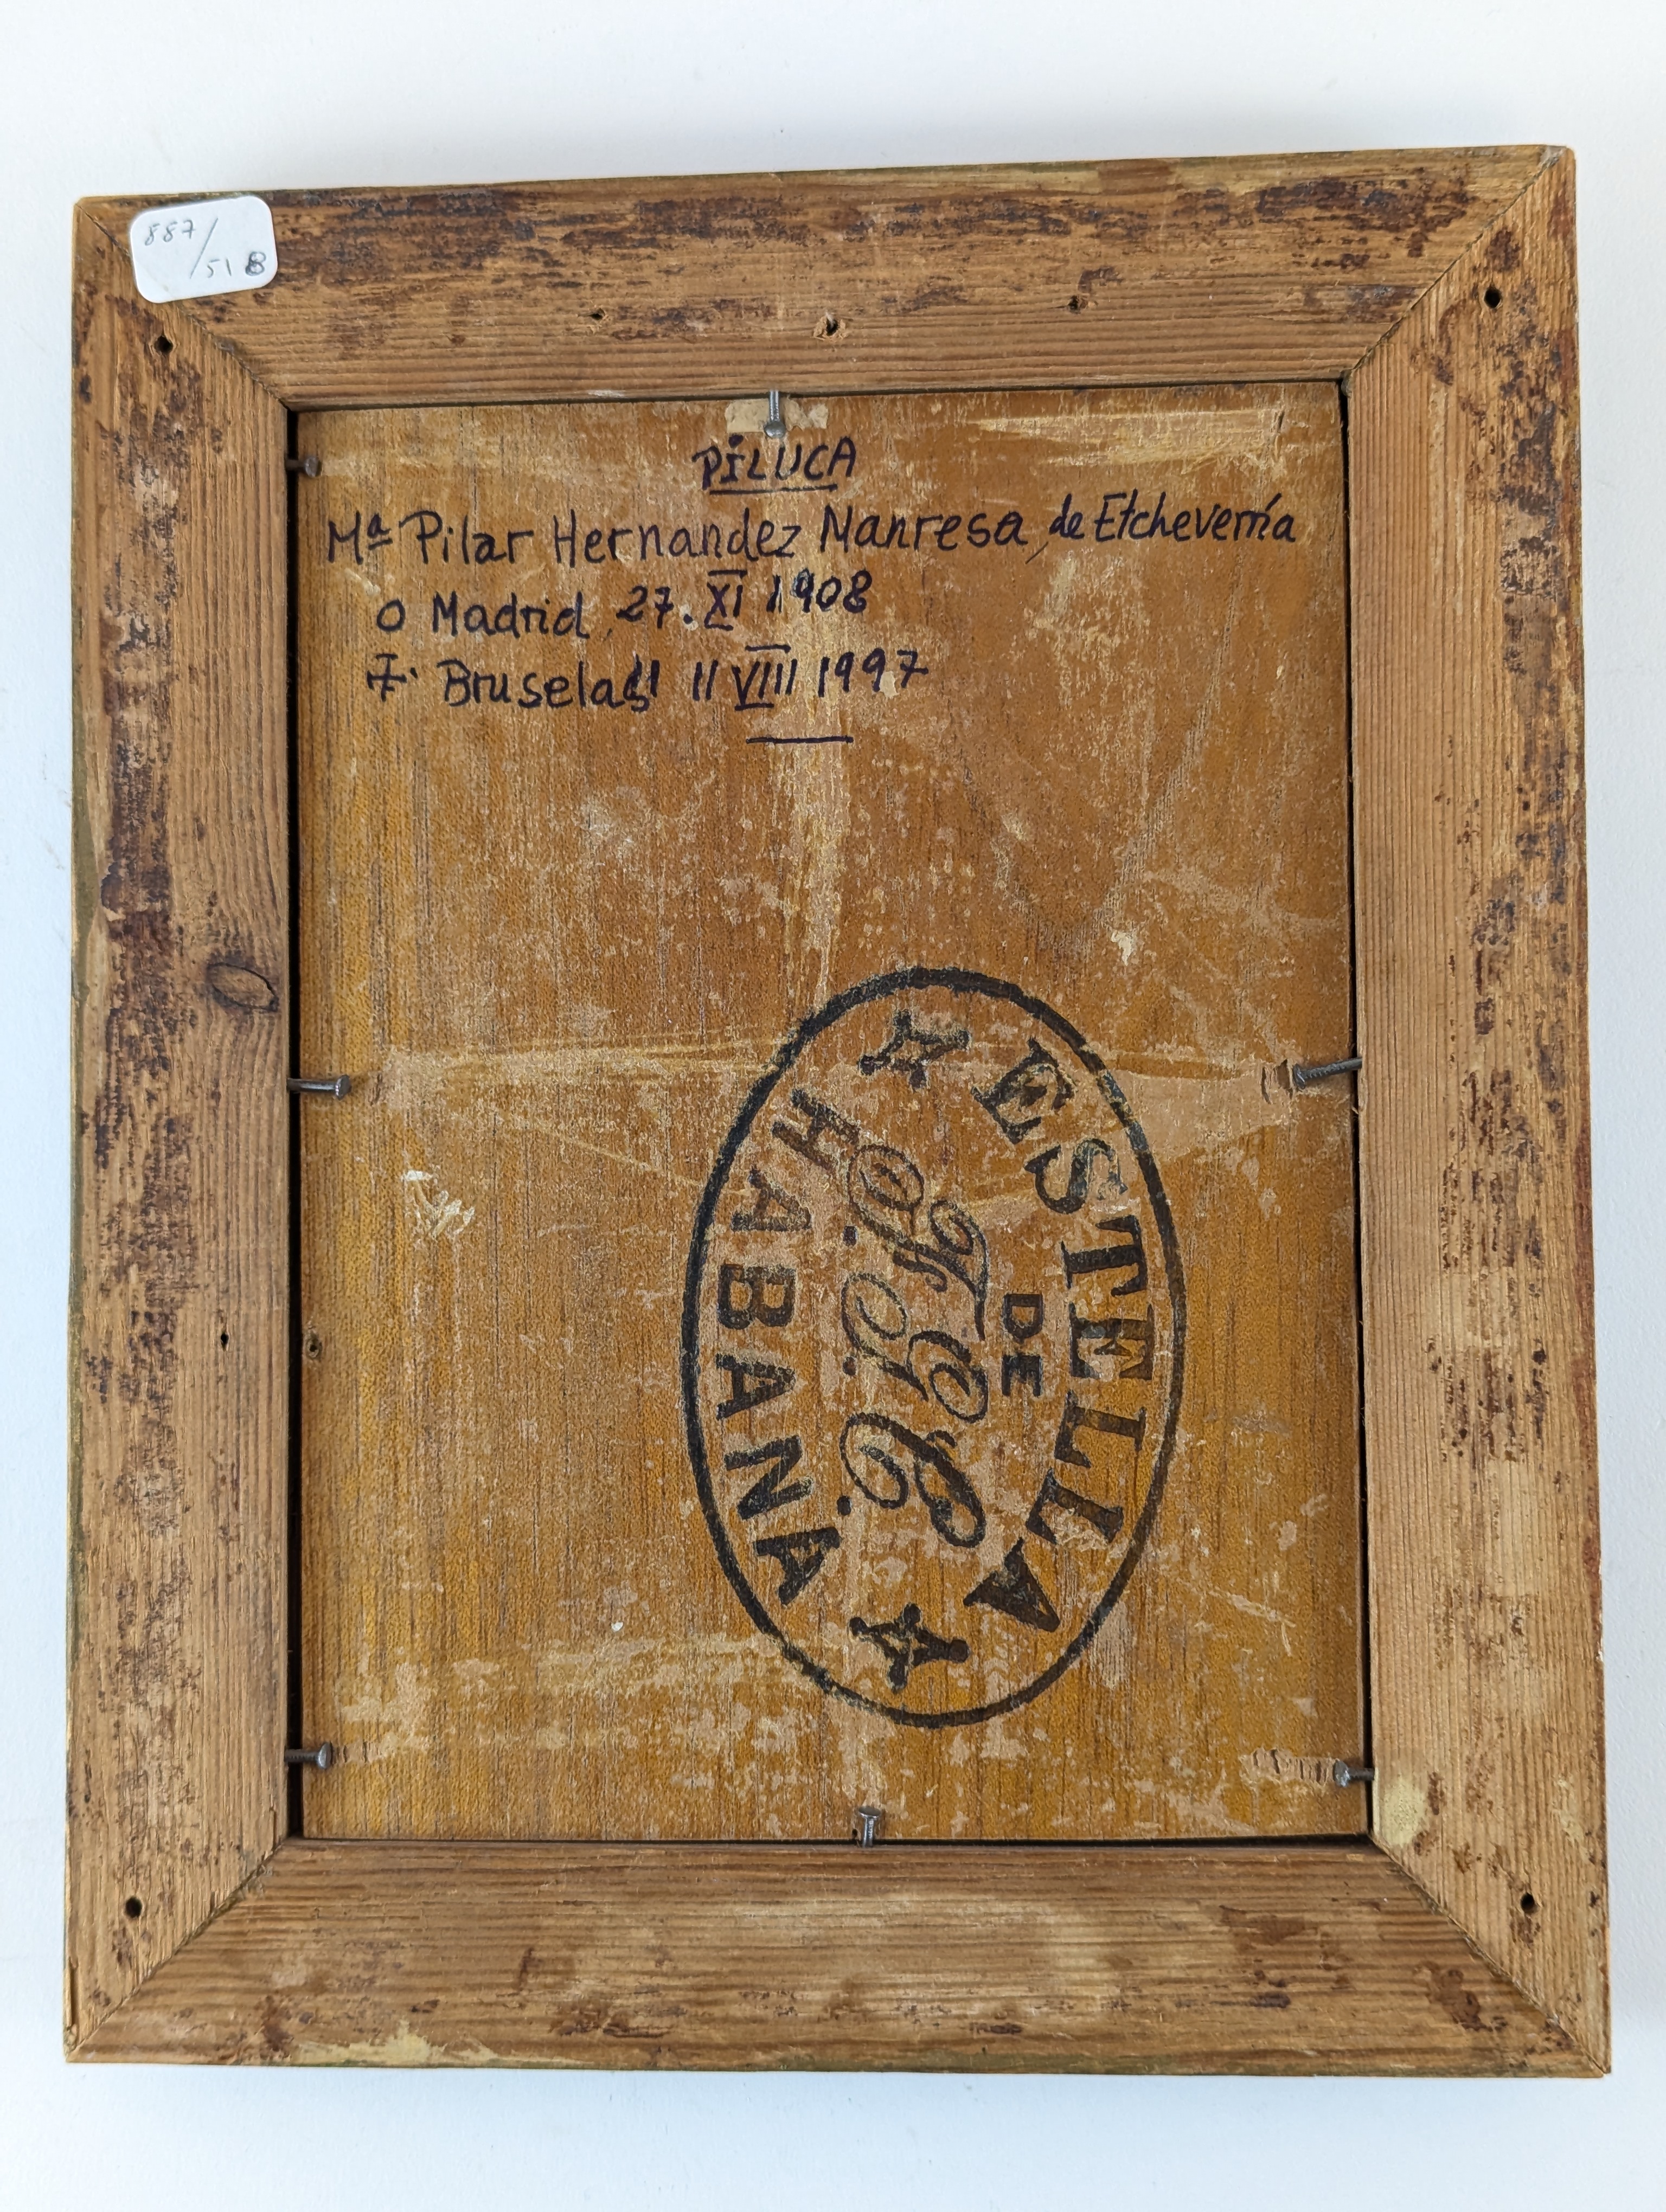 887/518
PILUCA
Mª Pilar Hernandez Manresa, de Etcheverría
o Madrid, 27. XI 1908
Bruselas 11 VIII 1997
ESTELLA
DE
HABANA